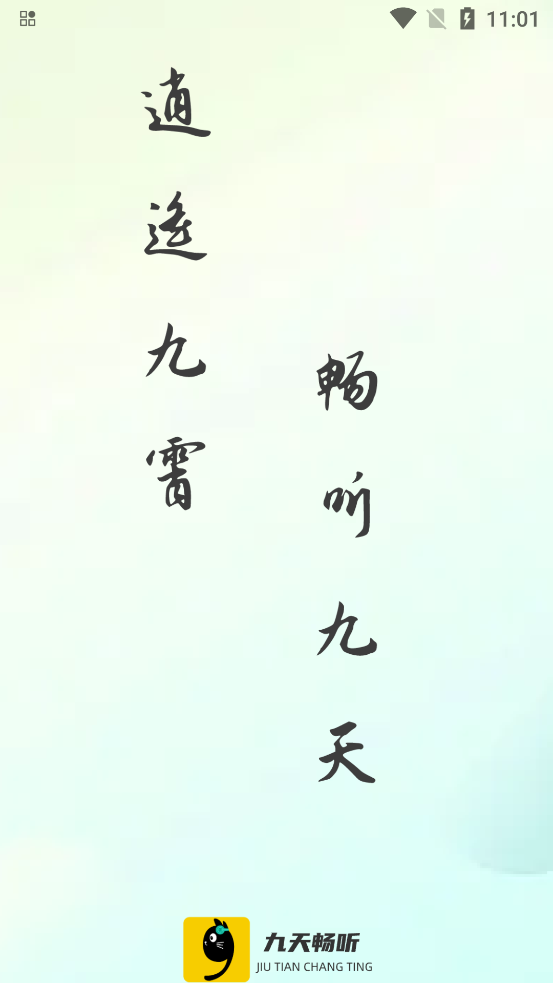 11:01
逍遥九霄
畅听九天
九天畅听
JIU TIAN CHANG TING